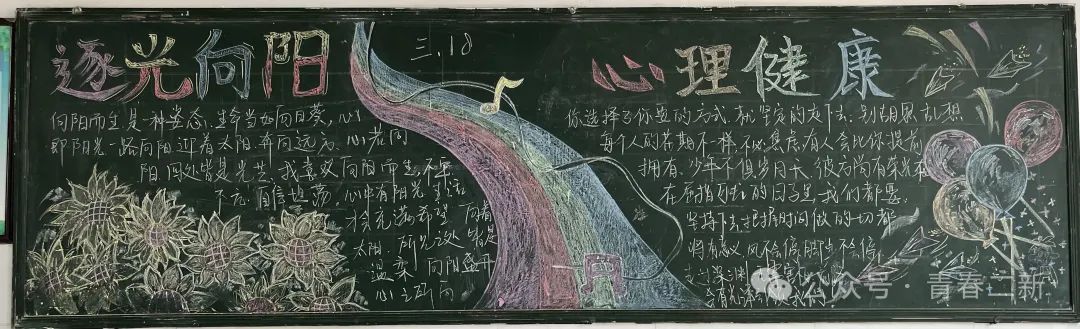 逐光向阳
三.18
心理健康
向阳而生是一种姿态,生命当如向日葵,心
即阳光一路向阳迎着太阳奔向远方 心若向
阳 回处皆是光芒,我喜欢向阳而生不卑
不亢 自信坦荡,心中有阳光 生活
才会充满希望 向着
太阳 所见之处 皆是
温柔 向阳盛开
心之所向
你选择了你要的方式 就坚定的走下去 别胡思乱想
每个人的花期不一样,不必焦虑有人会比你提前
拥有,少年不惧岁月长,彼方尚有荣光在
在 的日子里 我们都要
坚持下去 时间做的一切都
将有意义 风不会停 脚步不会停
公众号·青春二新